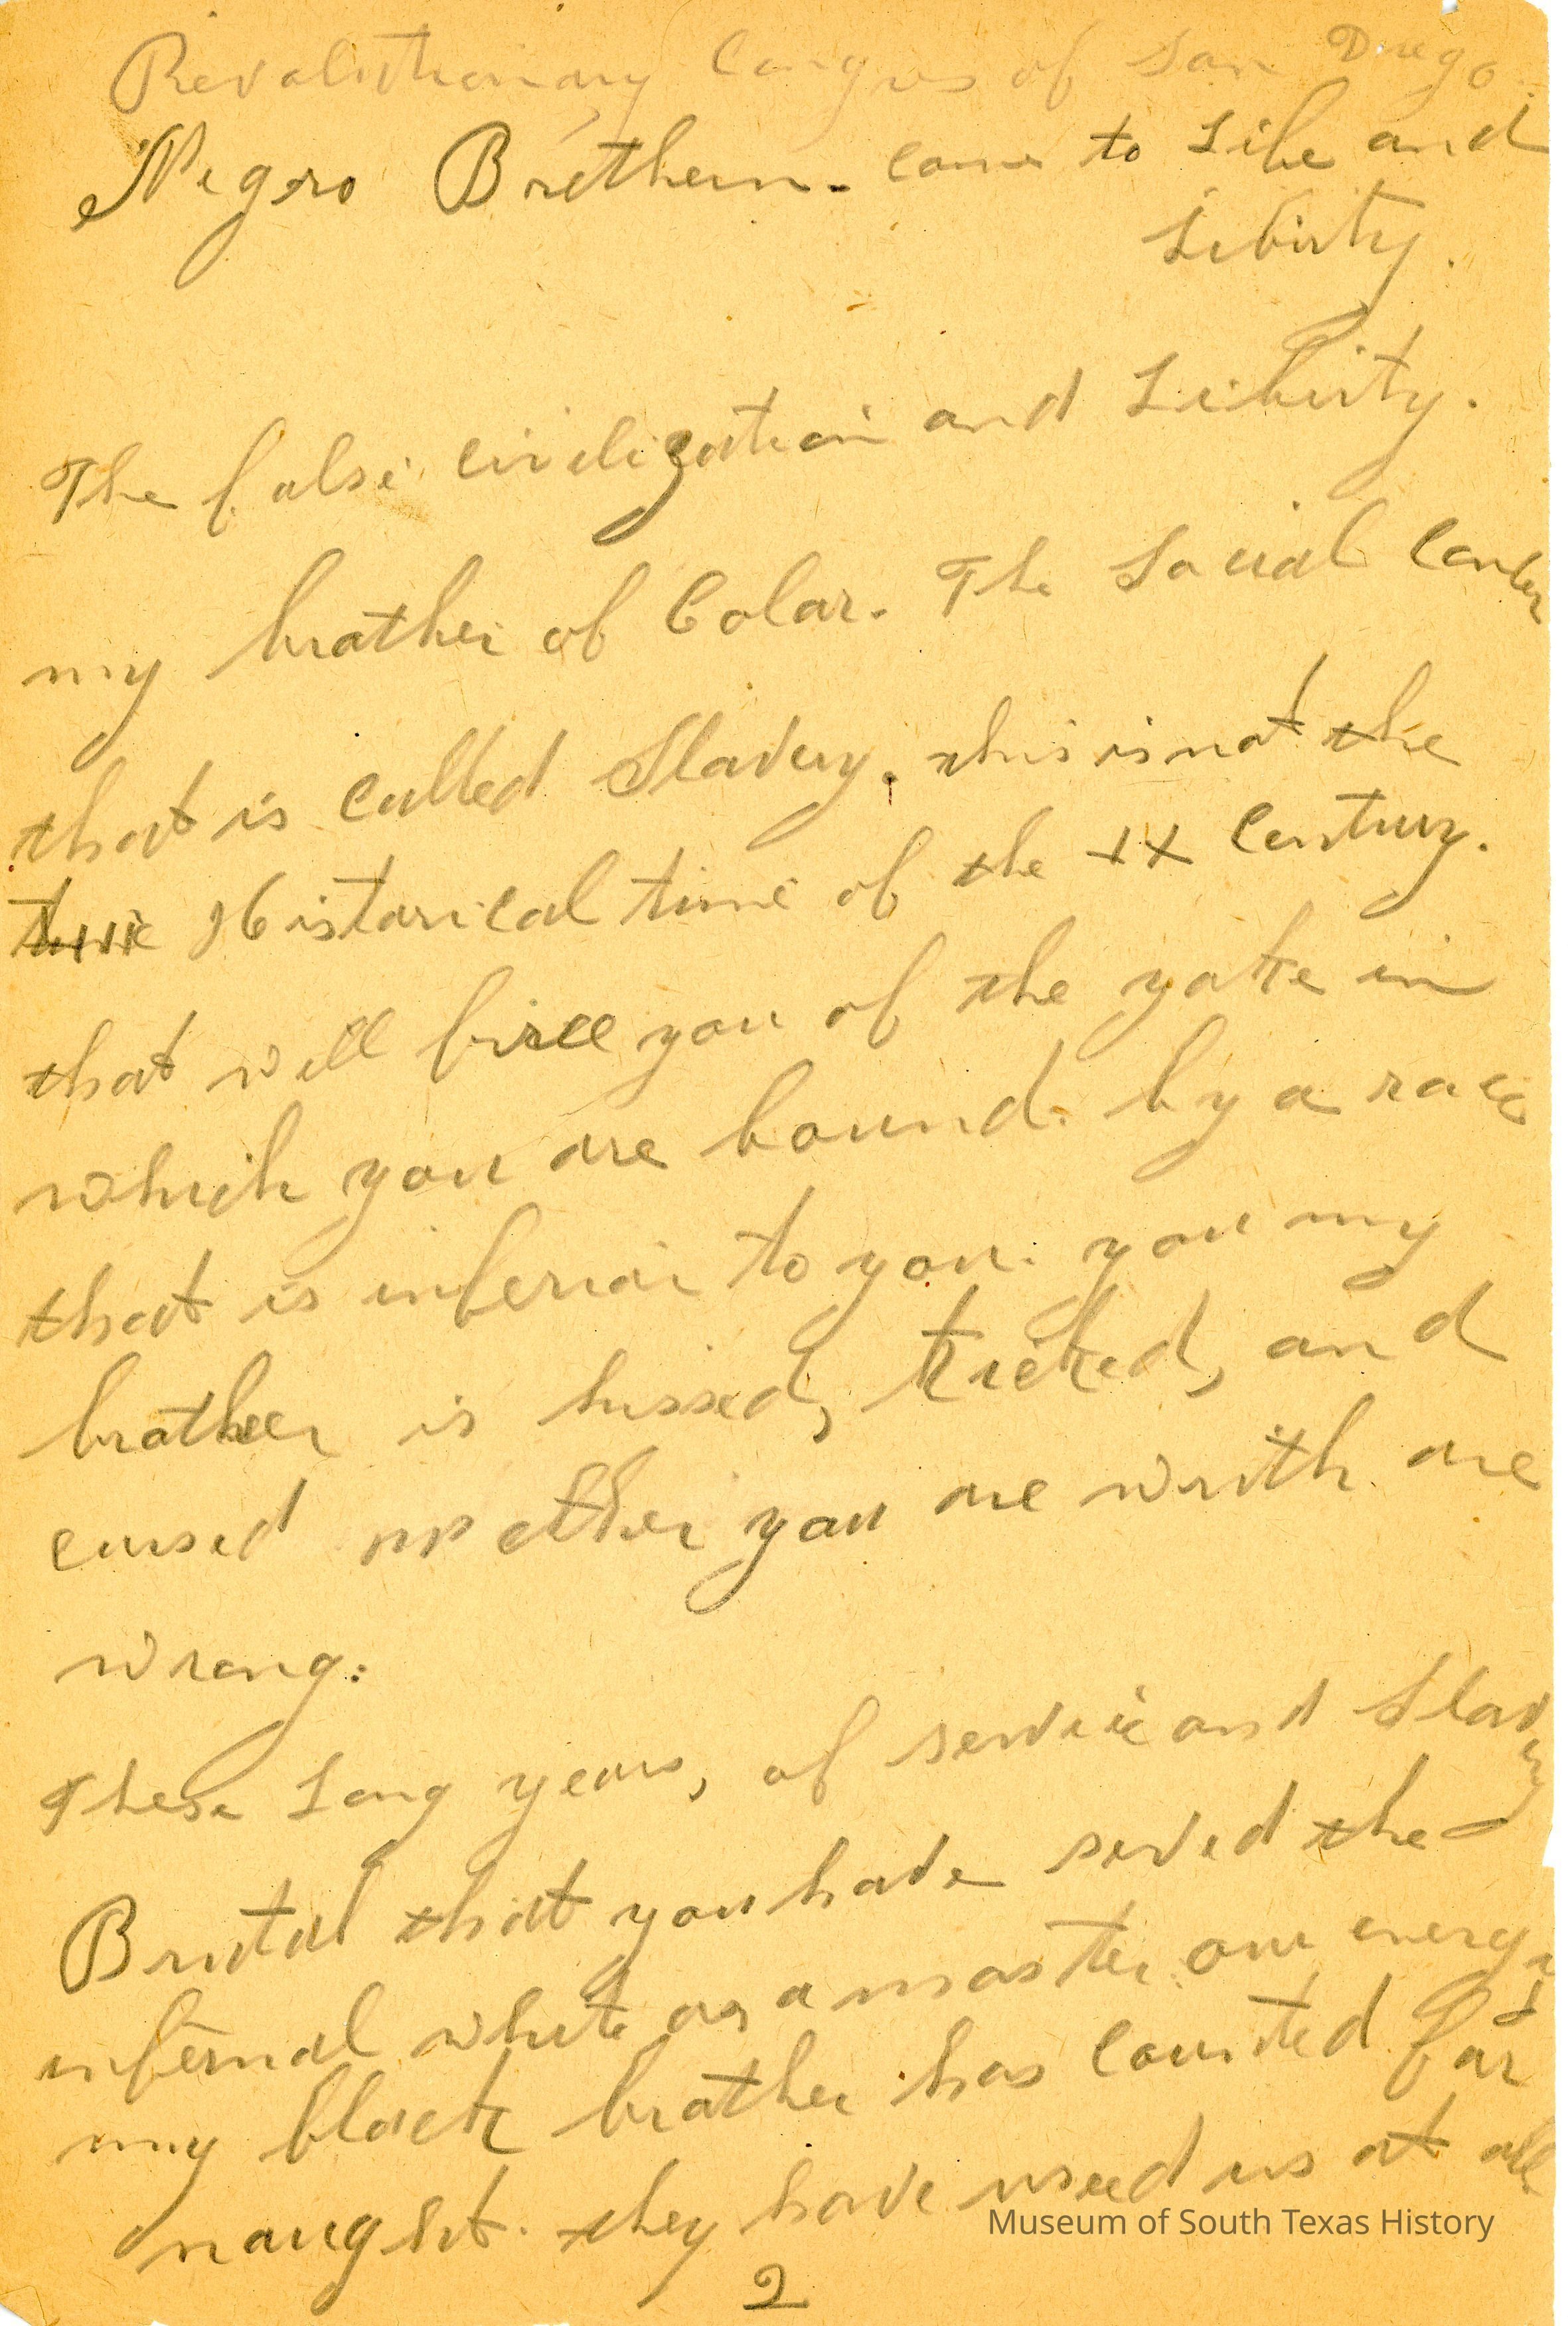 Revolutionary Congres of San Diego.
Negro Brethern. come to Life and
Liberty.
The false civilization and Liberty.
my brother of Color. The Social Canker
that is called Slavery. this is not the
Historical time of the XX Century.
that will free you of the yoke in
which you are bound. by a race
that is inferior to you. you my
brother is hissed, kicked, and
cursed you are with are
wrong:
These Long years, of service and Slavery
Brutal that you have served the
infernal white as a master our energy
my black brother has counted for
naught. they have used us at all
2
Museum of South Texas History